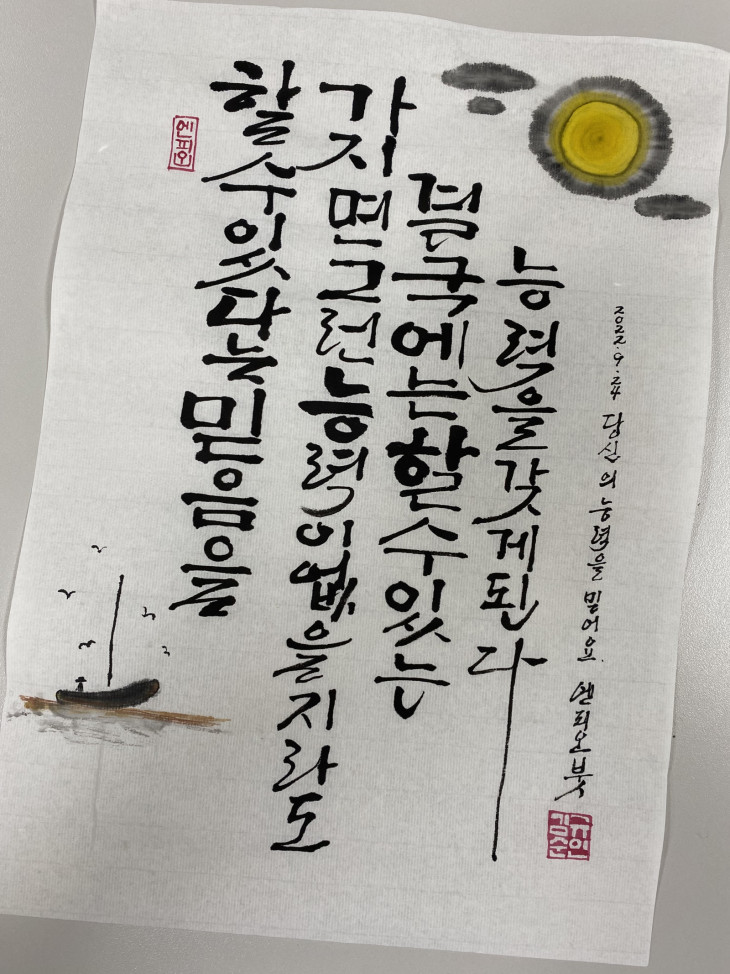 엔피오
할수있다는믿음을
가지면그런능력이없을지라도
결국에는할수있는
능력을갖게된다
2022.9.24 당신의 능력을 믿어요. 엔피오붓